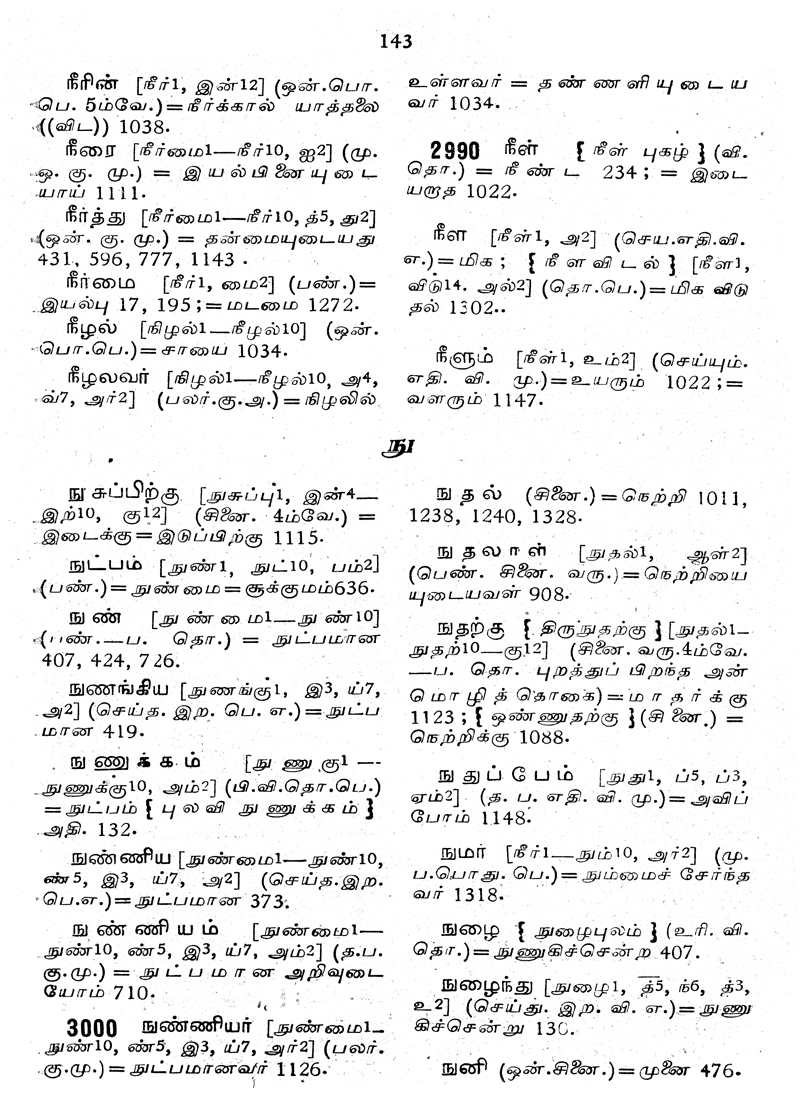 143
நீரின் [நீர்1, இன்12] (ஒன்.பொ.
பெ. 5ம்வே.)=நீர்க்கால் யாத்தலை
((விட)) 1038.
நீரை [நீர்மை1—நீர்10, ஐ2] (மு.
ஒ. கு. மு.) = இயல்பினையுடை
யாய் 1111.
நீர்த்து [நீர்மை1—நீர்10, த்5, து2]
(ஒன். கு. மு.) = தன்மையுடையது
431, 596, 777, 1143.
நீர்மை [நீர்1, மை2] (பண்.)=
இயல்பு 17, 195;=மடமை 1272.
நீழல் [நிழல்1—நீழல்10] (ஒன்.
பொ.பெ.)=சாயை 1034.
நீழலவர் [நிழல்1—நீழல்10, அ4,
வ்7, அர்2] (பலர்.கு.அ.)=நிழலில்
உள்ளவர் = தண்ணளியுடைய
வர் 1034.
2990 நீள் {நீள் புகழ்} (வி.
தொ.) = நீண்ட 234; = இடை
யறாத 1022.
நீள [நீள்1, அ2] (செய.எதி.வி.
எ.)=மிக; {நீளவிடல்} [நீள1,
விடு14. அல்2] (தொ.பெ.)=மிக விடு
தல் 1302..
நீளும் [நீள்1, உம்2] (செய்யும்.
எதி. வி. மு.)=உயரும் 1022;=
வளரும் 1147.
நு
நுசுப்பிற்கு [நுசுப்பு1, இன்4—
இற்10, கு12] (சினை. 4ம்வே.) =
இடைக்கு=இடுப்பிற்கு 1115.
நுட்பம் [நுண்1, நுட்10, பம்2]
(பண்.)=நுண்மை=சூக்குமம்636.
நுண் [நுண்மை1—நுண்10]
(பண்.—ப. தொ.) = நுட்பமான
407, 424, 726.
நுணங்கிய [நுணங்கு1, இ3, ய்7,
அ2] (செய்த. இற. பெ. எ.)=நுட்ப
மான 419.
நுணுக்கம் [நுணுகு1 —
நுணுக்கு10, அம்2] (பி.வி.தொ.பெ.)
=நுட்பம் {புலவி நுணுக்கம்}
அதி. 132.
நுண்ணிய [நுண்மை1—நுண்10,
ண்5, இ3, ய்7, அ2] (செய்த.இற.
பெ.எ.)=நுட்பமான 373.
நுண்ணியம் [நுண்மை1—
நுண்10, ண்5, இ3, ய்7, அம்2] (த.ப.
கு.மு.) = நுட்பமான அறிவுடை
யோம் 710.
3000 நுண்ணியர் [நுண்மை1—
நுண்10, ண்5, இ3, ய்7, அர்2] (பலர்.
கு.மு.)=நுட்பமானவர் 1126.
நுதல் (சினை.)=நெற்றி 1011,
1238, 1240, 1328.
நுதலாள் [நுதல்1, ஆள்2]
(பெண். சினை. வரு.)=நெற்றியை
யுடையவள் 908.
நுதற்கு {திருநுதற்கு} [நுதல்1—
நுதற்10—கு12] (சினை. வரு.4ம்வே.
—ப. தொ. புறத்துப் பிறந்த அன்
மொழித்தொகை)=மாதர்க்கு
1123; {ஒண்ணுதற்கு} (சினை.) =
நெற்றிக்கு 1088.
நுதுப்பேம் [நுது1, ப்5, ப்3,
ஏம்2] (த. ப. எதி. வி. மு.)=அவிப்
போம் 1148.
நுமர் [நீர்1—நும்10, அர்2] (மு.
ப.பொது. பெ.)=நும்மைச் சேர்ந்த
வர் 1318.
நுழை {நுழைபுலம்} (உரி. வி.
தொ.)=நுணுகிச்சென்ற 407.
நுழைந்து [நுழை1, த்5, ந்6, த்3,
உ2] (செய்து. இற. வி. எ.)=நுணு
கிச்சென்று 130.
நுனி (ஒன்.சினை.)=முனை 476.